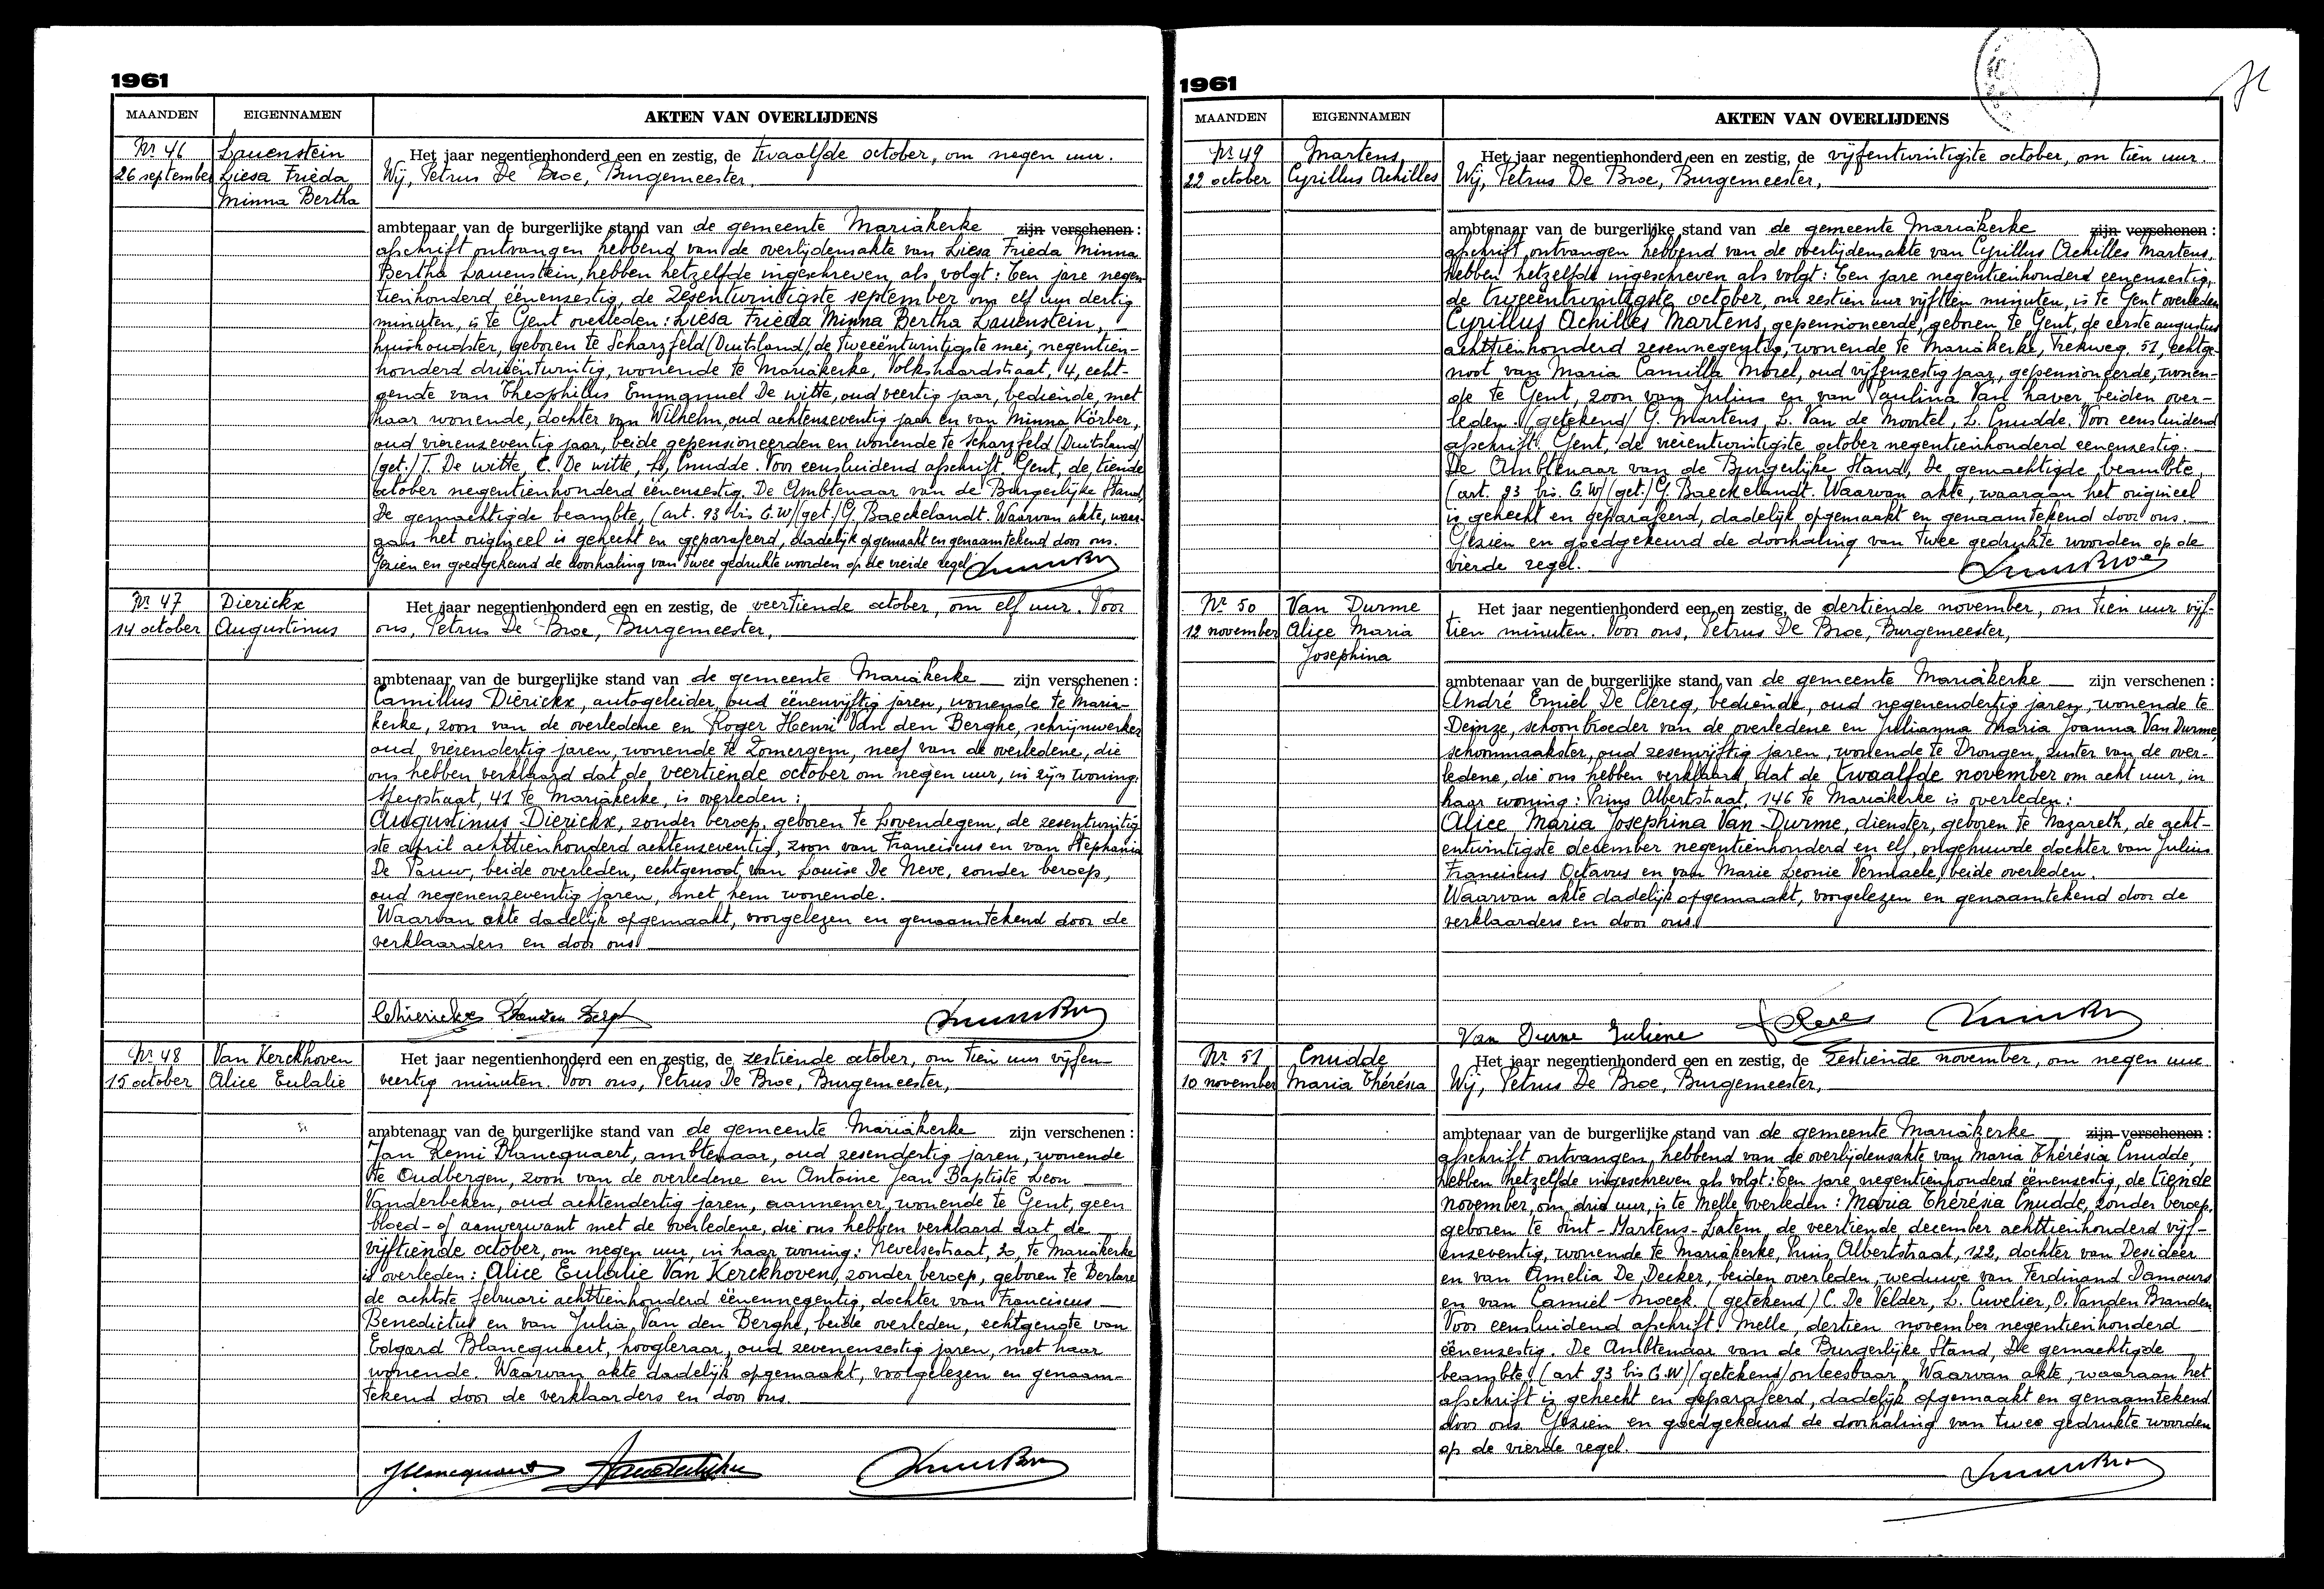 1961
MAANDEN
EIGENNAMEN
AKTEN VAN OVERLIJDENS
Nr 46
26 september
Lauenstein
Liesa Frieda
Minna Bertha
Het jaar negentienhonderd een en zestig, de twaalfde october, om negen uur.
Wij, Petrus De Broe, Burgemeester,
ambtenaar van de burgerlijke stand van de gemeente Mariakerke zijn verschenen :
afschrift ontvangen hebbend van de overlijdensakte van Liesa Frieda Minna
Bertha Lauenstein, hebben hetzelfde ingeschreven als volgt: Ten jare negen-
tienhonderd éénenzestig, de zesentwintigste september om elf uur dertig
minuten, is te Gent overleden: Liesa Frieda Minna Bertha Lauenstein,
huishoudster, geboren te Scharzfeld (Duitsland), de tweeëntwintigste mei, negentien-
honderd drieëntwintig, wonende te Mariakerke, Volkshaardstraat, 4, echt-
genote van Theophilus Emmanuel De witte, oud veertig jaar, bediende, met
haar wonende, dochter van Wilhelm, oud achtenzeventig jaar en van Minna Körber,
oud vierenzeventig jaar, beide gepensioneerden en wonende te Scharzfeld (Duitsland)
(get.) T. De witte, C. De witte, L. Cnudde. Voor eensluidend afschrift. Gent, de tiende
october negentienhonderd éénenzestig. De Ambtenaar van de Burgerlijke Stand,
De gemachtigde beambte, (art. 93 bis G.W) (get.) G. Baeckelandt. Waarvan akte, waar-
aan het origineel is gehecht en geparafeerd, dadelijk opgemaakt en genaamtekend door ons.
Gezien en goedgekeurd de doorhaling van twee gedrukte woorden op de vierde regel.
Nr 47
14 october
Dierickx
Augustinus
Het jaar negentienhonderd een en zestig, de veertiende october, om elf uur. Voor
ons, Petrus De Broe, Burgemeester,
ambtenaar van de burgerlijke stand van de gemeente Mariakerke zijn verschenen :
Camillus Dierickx, autogeleider, oud éénenvijftig jaren, wonende te Maria-
kerke, zoon van de overledene en Roger Henri Van den Berghe, schrijnwerker
oud vierendertig jaren, wonende te Zomergem, neef van de overledene, die
ons hebben verklaard dat de veertiende october om negen uur, in zijn woning:
Meystraat, 41 te Mariakerke, is overleden :
Augustinus Dierickx, zonder beroep, geboren te Lovendegem, de zesentwintig
ste april achttienhonderd achtenzeventig, zoon van Franciscus en van Stephania
De Pauw, beide overleden, echtgenoot van Louise De Neve, zonder beroep,
oud negenenzeventig jaren, met hem wonende.
Waarvan akte dadelijk opgemaakt, voorgelezen en genaamtekend door de
verklaarders en door ons.
Nr 48
15 october
Van Kerckhoven
Alice Eulalie
Het jaar negentienhonderd een en zestig, de zestiende october, om tien uur vijfen-
veertig minuten. Voor ons, Petrus De Broe, Burgemeester,
ambtenaar van de burgerlijke stand van de gemeente Mariakerke zijn verschenen :
Jan Remi Blancquaert, ambtenaar, oud zesendertig jaren, wonende
te Oudbergen, zoon van de overledene en Antoine Jean Baptiste Leon
Vanderbeken, oud achtendertig jaren, aannemer, wonende te Gent, geen
bloed- of aanverwant met de overledene, die ons hebben verklaard dat de
vijftiende october, om negen uur, in haar woning: Nevelsestraat, 20, te Mariakerke
is overleden: Alice Eulalie Van Kerckhoven, zonder beroep, geboren te Berlare
de achtste februari achttienhonderd éénennegentig, dochter van Franciscus
Benedictus en van Julia Van den Berghe, beide overleden, echtgenote van
Edgard Blancquaert, hoogleraar, oud zevenenzestig jaren, met haar
wonende. Waarvan akte dadelijk opgemaakt, voorgelezen en genaam-
tekend door de verklaarders en door ons.
1961
MAANDEN
EIGENNAMEN
AKTEN VAN OVERLIJDENS
Nr 49
22 october
Martens
Cyrillus Achilles
Het jaar negentienhonderd een en zestig, de vijfentwintigste october, om tien uur.
Wij, Petrus De Broe, Burgemeester,
ambtenaar van de burgerlijke stand van de gemeente Mariakerke zijn verschenen :
afschrift ontvangen hebbend van de overlijdensakte van Cyrillus Achilles Martens,
hebben hetzelfde ingeschreven als volgt: Ten jare negentienhonderd eenenzestig,
de tweeëntwintigste october, om zestien uur vijftien minuten, is te Gent overleden
Cyrillus Achilles Martens, gepensioneerde, geboren te Gent, de eerste augustus
achttienhonderd zesennegentig, wonende te Mariakerke, Trekweg, 51, echtge-
noot van Maria Camilla Morel, oud vijfenzestig jaar, gepensioneerde, wonen-
de te Gent, zoon van Julius en van Paulina Van haver, beiden over-
leden. (getekend) G. Martens, L. Van de Moortel, L. Cnudde. Voor eensluidend
afschrift. Gent, de vierentwintigste october negentienhonderd eenenzestig.
De Ambtenaar van de Burgerlijke Stand, De gemachtigde beambte,
(art. 93 bis G.W) (get.) G. Baeckelandt. Waarvan akte, waaraan het origineel
is gehecht en geparafeerd, dadelijk opgemaakt en genaamtekend door ons.
Gezien en goedgekeurd de doorhaling van twee gedrukte woorden op de
vierde regel.
Nr 50
12 november
Van Durme
Alice Maria
Josephina
Het jaar negentienhonderd een en zestig, de dertiende november, om tien uur vijf-
tien minuten. Voor ons, Petrus De Broe, Burgemeester,
ambtenaar van de burgerlijke stand van de gemeente Mariakerke zijn verschenen :
André Emiel De Clercq, bediende, oud negenendertig jaren, wonende te
Deinze, schoonbroeder van de overledene en Julianna Maria Joanna Van Durme,
schoonmaakster, oud zesenvijftig jaren, wonende te Drongen, zuster van de over-
ledene, die ons hebben verklaard, dat de twaalfde november om acht uur, in
haar woning: Prins Albertstraat, 146 te Mariakerke is overleden:
Alice Maria Josephina Van Durme, dienster, geboren te Nazareth, de acht-
entwintigste december negentienhonderd en elf, ongehuwde dochter van Julius
Franciscus Octavus en van Marie Leonie Vermaele, beide overleden.
Waarvan akte dadelijk opgemaakt, voorgelezen en genaamtekend door de
verklaarders en door ons.
Van Durme Juliene
Nr 51
10 november
Cnudde
Maria Thérésia
Het jaar negentienhonderd een en zestig, de zestiende november, om negen uur
Wij, Petrus De Broe, Burgemeester,
ambtenaar van de burgerlijke stand van de gemeente Mariakerke zijn verschenen :
afschrift ontvangen hebbend van de overlijdensakte van Maria Thérésia Cnudde
hebben hetzelfde ingeschreven als volgt: Ten jare negentienhonderd éénenzestig, de tiende
november, om drie uur, is te Melle overleden : Maria Thérésia Cnudde, zonder beroep,
geboren te Sint-Martens-Latem, de veertiende december achttienhonderd vijf-
enzeventig, wonende te Mariakerke, Prins Albertstraat, 122, dochter van Desideer
en van Amelia De Decker, beiden overleden, weduwe van Ferdinand Damours
en van Camiel Snoeck. (getekend) C. De Velder, L. Cuvelier, O. Vanden Branden
Voor eensluidend afschrift. Melle, dertien november negentienhonderd
éénenzestig. De Ambtenaar van de Burgerlijke Stand, De gemachtigde
beambte, (art 93 bis G.W) (getekend) onleesbaar. Waarvan akte, waaraan het
afschrift is gehecht en geparafeerd, dadelijk opgemaakt en genaamtekend
door ons. Gezien en goedgekeurd de doorhaling van twee gedrukte woorden
op de vierde regel.